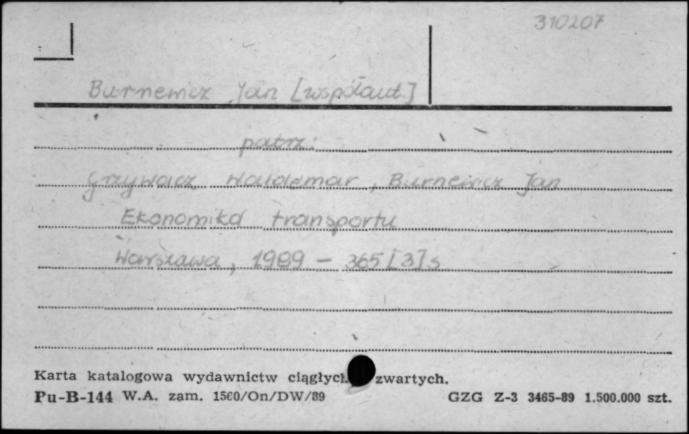 310207
Burnewicz Jan [współaut.]
patrz:
Grzywacz Waldemar, Burnewicz Jan
Ekonomika transportu
Warszawa, 1989 - 365[3]s
Karta katalogowa wydawnictw ciągłych zwartych.
Pu-B-144 W.A. zam. 1560/On/DW/89 GZG Z-3 3465-89 1.500.000 szt.